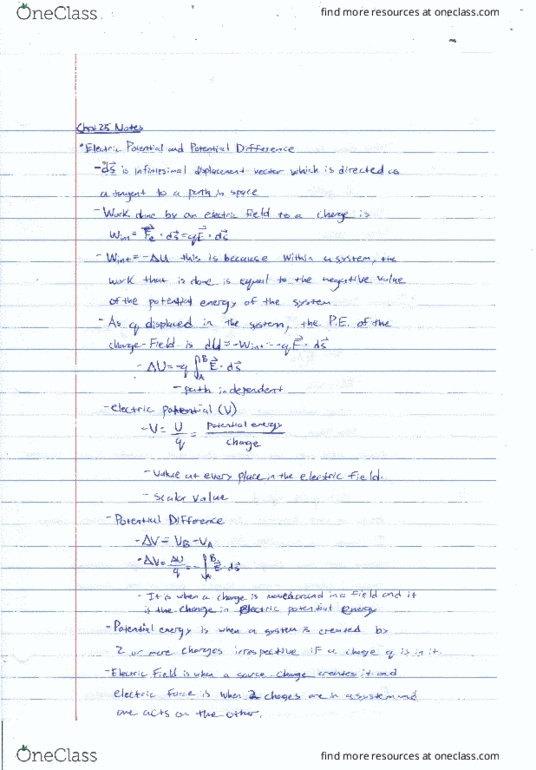 OneClass
find more resources at oneclass.com
Chpt 25 Notes
• Electric Potential and Potential Difference
- "ds⃗ is infinitesimal displacement vector which is directed as
a tangent to a path in space
- Work done by an electric field to a charge is
Wint = F⃗e · ds⃗ = qE⃗ · ds⃗
- Wint = -ΔU this is because within a system, the
work that is done is equal to the negative value
of the potential energy of the system
- As q displaced in the system, the P.E. of the
charge-field is dU = -Wint = -qE⃗ · ds⃗
- ΔU = -q ∫_A^B E⃗ · ds⃗
- path independent
- electric potential (V)
- V = U/q = Potential energy/charge
- Value at every place in the electric field.
- scalar value
- Potential Difference
- ΔV = VB - VA
- ΔV = ΔU/q = -∫_A^B E⃗ · ds⃗
- It is when a charge is moved around in a field and it
is the change in electric potential energy
- Potential energy is when a system is created by
2 or more charges irrespective if a charge q is in it.
- Electric Field is when a source charge creates it and
electric force is when 2 charges are in a system and
one acts on the other.
OneClass
find more resources at oneclass.com